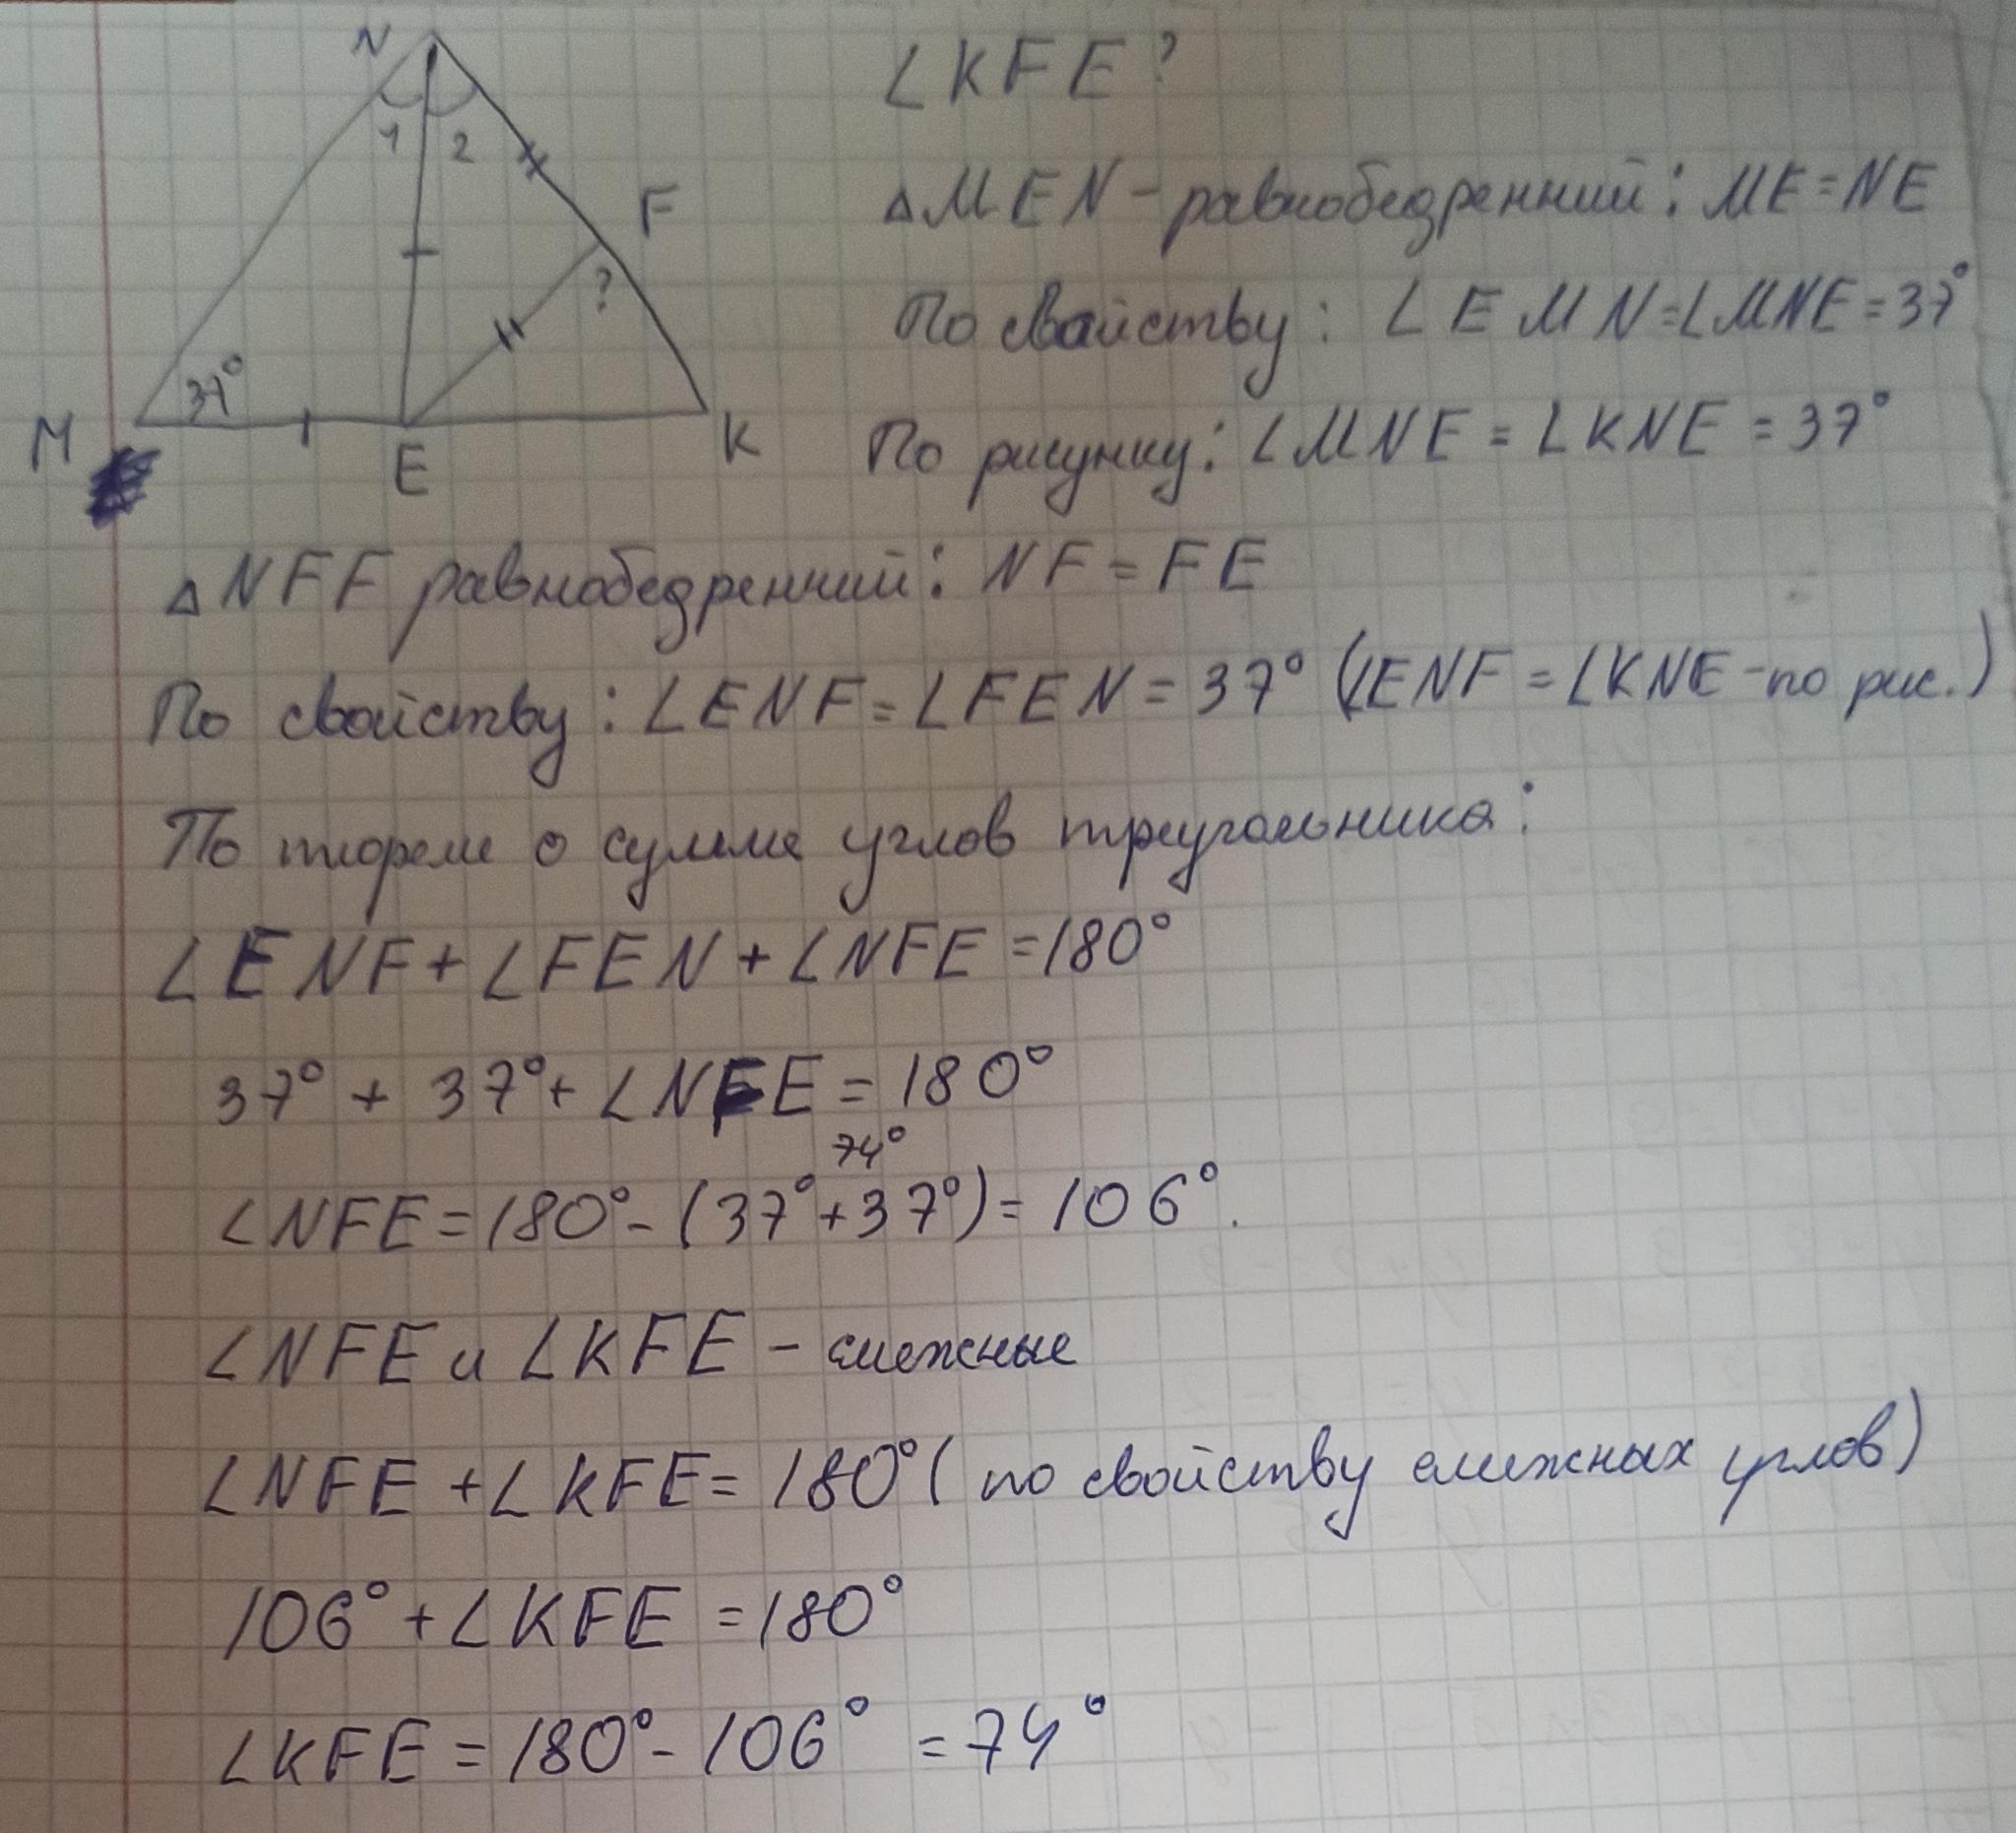 N
1 2
F
?
37°
M
E
K
∠KFE?
△MEN - равнобедренний: ME = NE
По свойству: ∠EMN = ∠MNE = 37°
По рисунку: ∠MNE = ∠KNE = 37°
△NFF равнобедренний: NF = FE
По свойству: ∠ENF = ∠FEN = 37° (∠ENF = ∠KNE - по рис.)
По теореме о сумме углов треугольника:
∠ENF + ∠FEN + ∠NFE = 180°
37° + 37° + ∠NFE = 180°
74°
∠NFE = 180° - (37° + 37°) = 106°.
∠NFE и ∠KFE - смежные
∠NFE + ∠KFE = 180° (по свойству смежных углов)
106° + ∠KFE = 180°
∠KFE = 180° - 106° = 74°